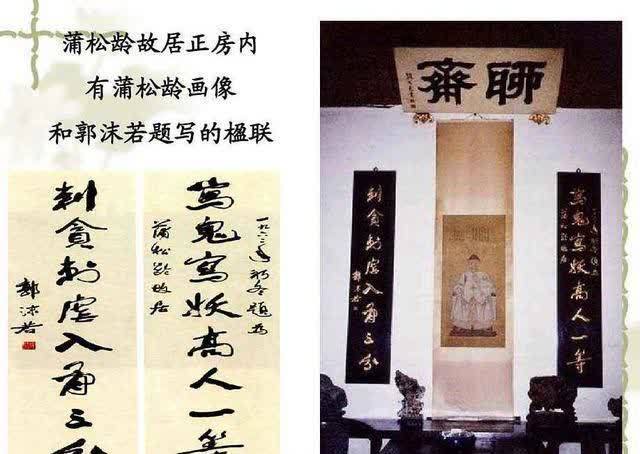 蒲松龄故居正房内
有蒲松龄画像
和郭沫若题写的楹联
寫鬼寫妖高人一等
一九六二年初冬題為
蒲松龄故居
刺貪刺虐入骨三分
郭沫若
聊齋
寫鬼寫妖高人一等
蒲松龄故居
刺貪刺虐入骨三分
郭沫若